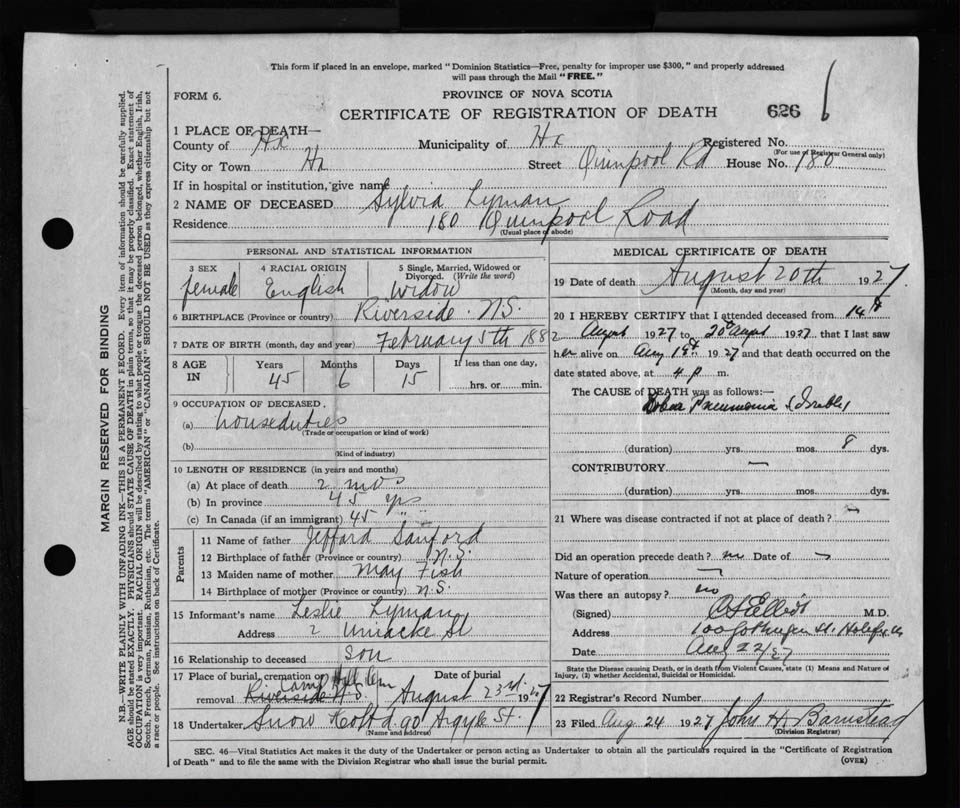 This form if placed in an envelope, marked "Dominion Statistics—Free, penalty for improper use $300," and properly addressed
will pass through the Mail "FREE."
FORM 6.
PROVINCE OF NOVA SCOTIA
CERTIFICATE OF REGISTRATION OF DEATH 626
1 PLACE OF DEATH—
County of Hx Municipality of Hx Registered No.
(For use of Registrar General only)
City or Town Hx Street Quinpool Rd House No. 180
If in hospital or institution, give name
2 NAME OF DECEASED Sylvia Lyman
Residence 180 Quinpool Road
(Usual place of abode)
PERSONAL AND STATISTICAL INFORMATION
3 SEX 4 RACIAL ORIGIN 5 Single, Married, Widowed or
Divorced. (Write the word)
female English Widow
6 BIRTHPLACE (Province or country) Riverside N.S.
7 DATE OF BIRTH (month, day and year) February 5th 1882
8 AGE IN Years Months Days If less than one day,
45 6 15 hrs. or min.
9 OCCUPATION OF DECEASED
(a) houseduties
(Trade or occupation or kind of work)
(b)
(Kind of industry)
10 LENGTH OF RESIDENCE (in years and months)
(a) At place of death 2 mos
(b) In province 45 yrs
(c) In Canada (if an immigrant) 45 " "
Parents
11 Name of father Jefford Sanford
12 Birthplace of father (Province or country) N.S.
13 Maiden name of mother May Fish
14 Birthplace of mother (Province or country) N.S.
15 Informant's name Leslie Lyman
Address 2 Uniacke St
16 Relationship to deceased Son
17 Place of burial, cremation or Camp Hill Cem Date of burial
removal Riverside N.S. August 23rd. 1927
18 Undertaker Snow & Co Ltd. 90 Argyle St.
(Name and address)
MEDICAL CERTIFICATE OF DEATH
19 Date of death August 20th 1927
(Month, day and year)
20 I HEREBY CERTIFY that I attended deceased from 14th
August 1927 to 20th August 1927 that I last saw
her alive on Aug 19th 1927 and that death occurred on the
date stated above, at 4 p m.
The CAUSE of DEATH was as follows:—
Lobar Pneumonia (double)
(duration) yrs. mos. 8 dys.
CONTRIBUTORY —
(duration) yrs. mos. dys.
21 Where was disease contracted if not at place of death? —
Did an operation precede death? no Date of —
Nature of operation —
Was there an autopsy? no
(Signed) Elliott M.D.
Address 100 Gottingen St. Halifax
Date Aug 22/27
State the Disease causing Death, or in death from Violent Causes, state (1) Means and Nature of
Injury, (2) whether Accidental, Suicidal or Homicidal.
22 Registrar's Record Number
23 Filed Aug. 24 1927 John H. Barnstead
(Division Registrar)
SEC. 46—Vital Statistics Act makes it the duty of the Undertaker or person acting as Undertaker to obtain all the particulars required in the "Certificate of Registration
of Death" and to file the same with the Division Registrar who shall issue the burial permit.
(OVER)
MARGIN RESERVED FOR BINDING
N.B.—WRITE PLAINLY WITH UNFADING INK—THIS IS A PERMANENT RECORD. Every item of information should be carefully supplied.
AGE should be stated EXACTLY. PHYSICIANS should STATE CAUSE OF DEATH in plain terms, so that it may be properly classified. Exact statement of
OCCUPATION is very important. RACIAL ORIGIN will be described by stating to what people or tongue the deceased person belonged, whether English, Irish,
Scotch, French, German, Russian, Ruthenian, etc. The terms "AMERICAN" or "CANADIAN" SHOULD NOT BE USED as they express citizenship but not
a race or people. See instructions on back of Certificate.